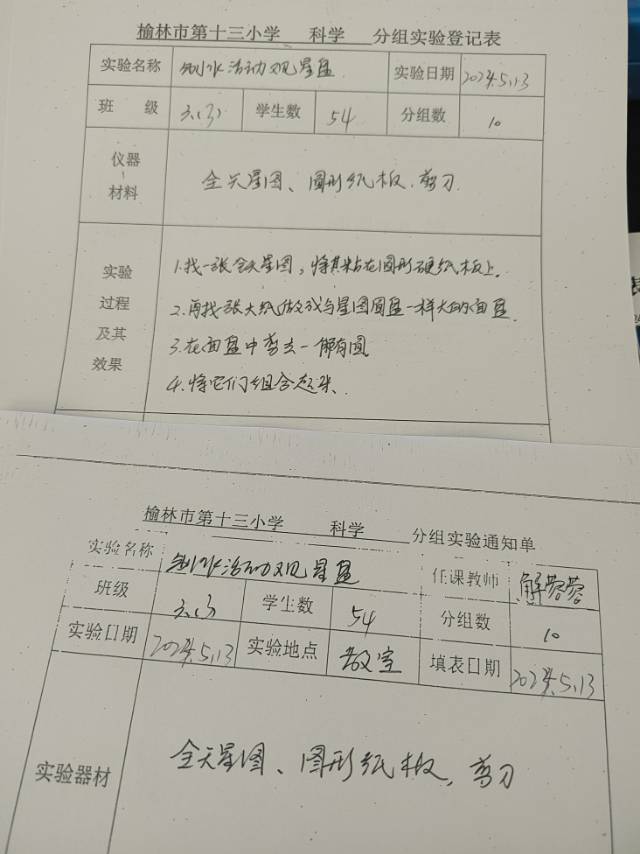 榆林市第十三小学 科学 分组实验登记表
实验名称 制作活动观星盘 实验日期 2024.5.13
班 级 六(3) 学生数 54 分组数 10
仪器、材料 全天星图、圆形纸板、剪刀
实验过程及其效果
1.找一张全天星图,将其粘在圆形硬纸板上。
2.再找张大纸做成与星图圆盘一样大的面盘
3.在面盘中剪去一椭圆
4.将它们组合起来、
榆林市第十三小学 科学 分组实验通知单
实验名称 制作活动观星盘 任课教师 解蓉蓉
班级 六(3) 学生数 54 分组数 10
实验日期 2024.5.13 实验地点 教室 填表日期 2024.5.13
实验器材 全天星图、圆形纸板、剪刀